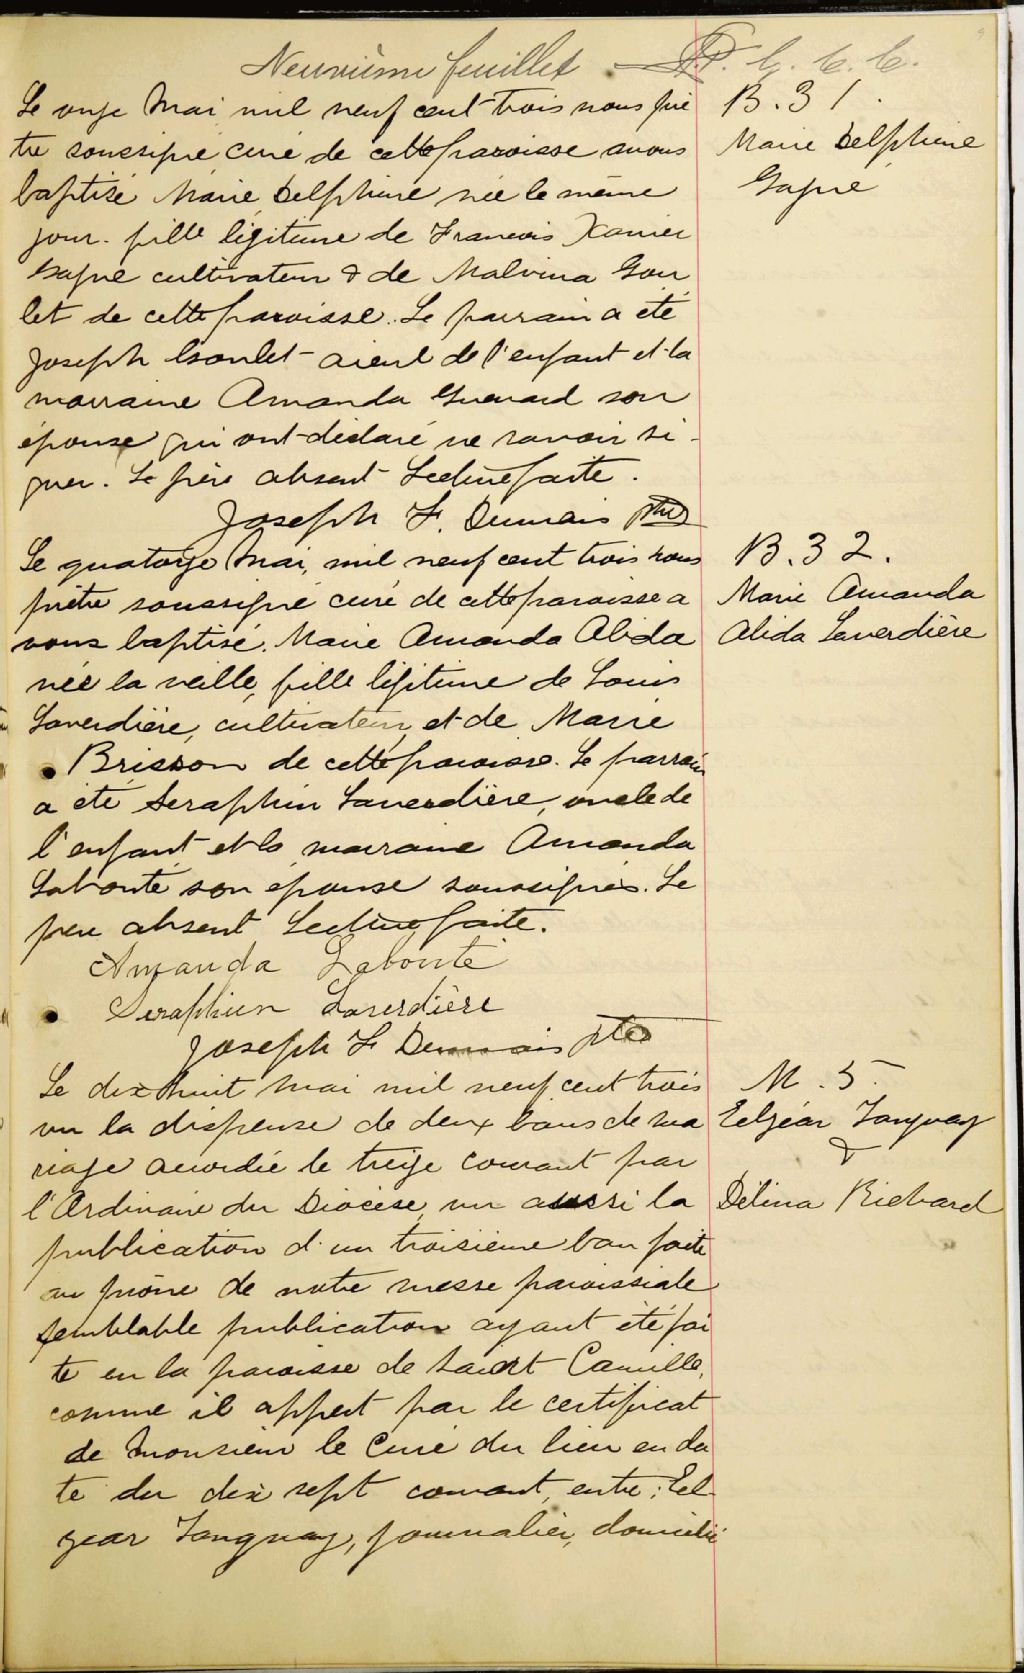 Neuvième feuillet
B. 31.
Marie Delphine
Gagné
Le onze Mai mil neuf cent trois nous prê
tre soussigné curé de cette paroisse avons
baptisé Marie Delphine née le même
jour. fille légitime de Francois Xavier
Gagné cultivateur & de Malvina Gou
let de cette paroisse. Le parrain a été
Joseph Goulet aieul de l'enfant et la
marraine Amanda Guenard son
épouse qui ont déclaré ne savoir si-
gner. Le père absent Lecture faite.
Joseph F. Dumais ptre
B. 32.
Marie Amanda
Alida Laverdière
Le quatorze Mai, mil neuf cent trois nous
prêtre soussigné curé de cette paroisse a
vons baptisé Marie Amanda Alida
née la veille, fille légitime de Louis
Laverdière, cultivateur, et de Marie
Brisson de cette paroisse. Le parrain
a été Seraphin Laverdière, oncle de
l'enfant et la marraine Amanda
Labonté son épouse soussignés. Le
père absent Lecture faite.
Amanda Labonté
Seraphien Laverdière
Joseph F Dumais ptre
M. 5.
Eelzéar Tanguay
&
Délina Richard
Le dix huit Mai mil neuf cent trois
vu la dispense de deux bans de ma
riage accordée le treize courant par
l'Ordinaire du Diocèse, vu aussi la
publication d'un troisième ban faite
au prône de notre messe paroissiale
semblable publication ayant été fai
te en la paroisse de Saint Camille,
comme il appert par le certificat
de Monsieur le Curé du lieu en da
te du dix sept courant, entre: Eel
zear Tanguay, journalier, domicilié